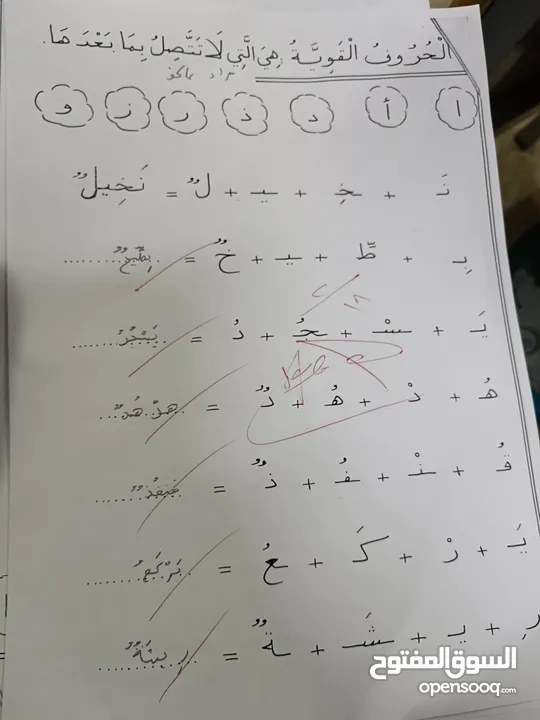 الْحُرُوفُ الْقَوِيَّةُ هِيَ الَّتِي لَا تَتَّصِلُ بِمَا بَعْدَهَا.
ا أ د ذ ر ز و
نَـ + ـخِـ + ـيـ + لٌ = نَخِيلٌ
بِـ + ـطِّـ + ـيـ + خٌ = بِطِّيخٌ
يَـ + ـسْـ + ـجُـ + دُ =
هُـ + دْ + هُـ + دٌ = هدْهُدٌ
قُـ + ـنْـ + ـفُـ + ذٌ =
يَـ + رْ + كَـ + عُ =
رِ + يـ + ـشَـ + ـةٌ =
السوق المفتوح
opensooq.com